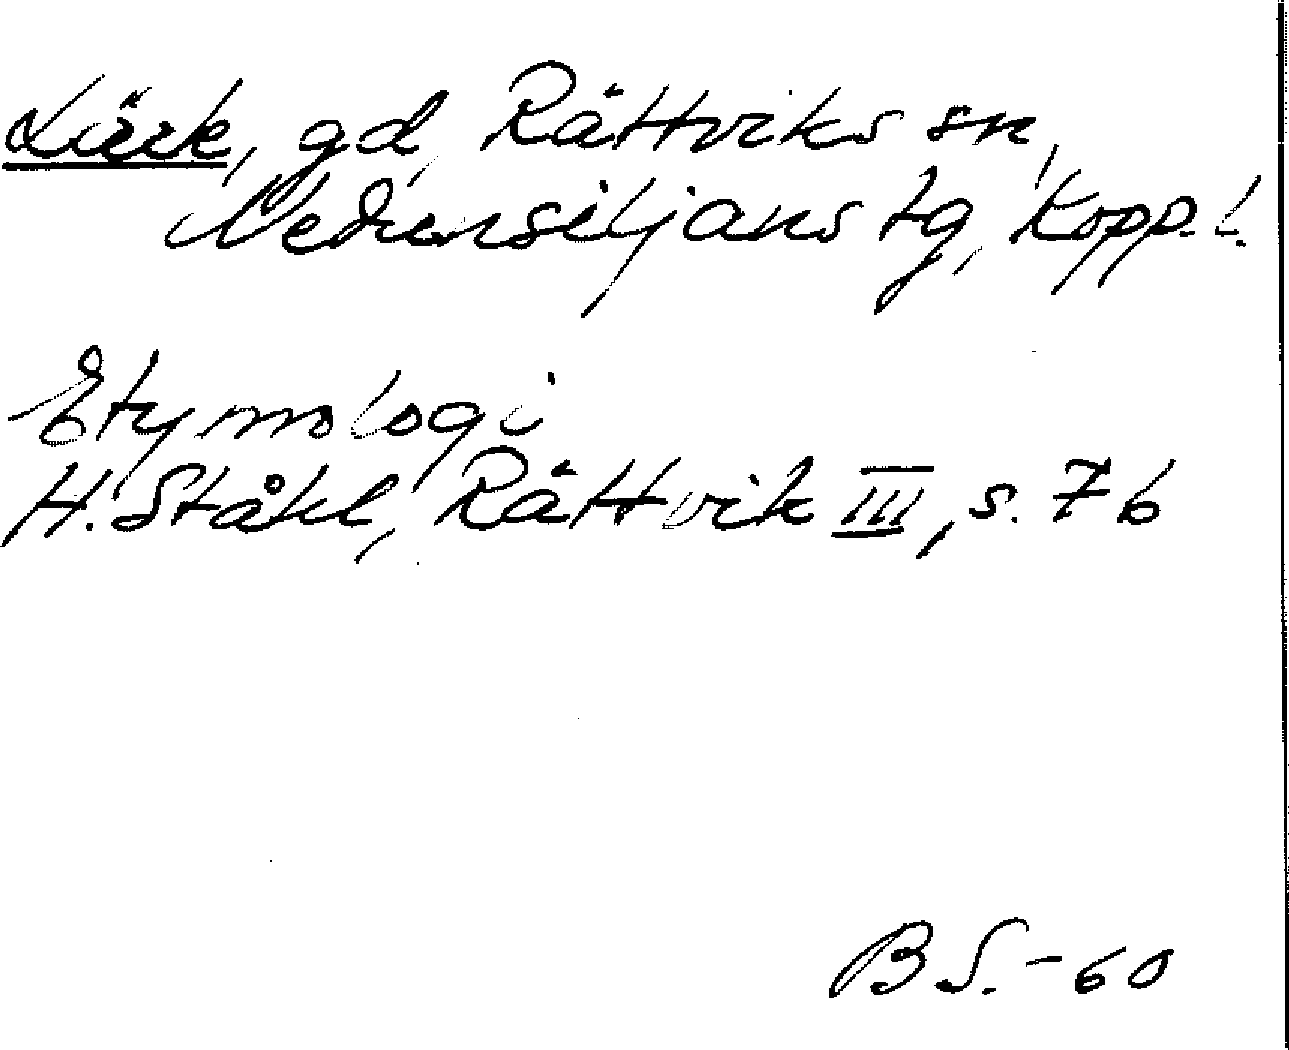 Lärk, gd, Rättviks sn,
Nedansiljans tg, Kopp. l.
Etymologi
H. Ståhl, Rättvik III, s. 76
B S. - 60